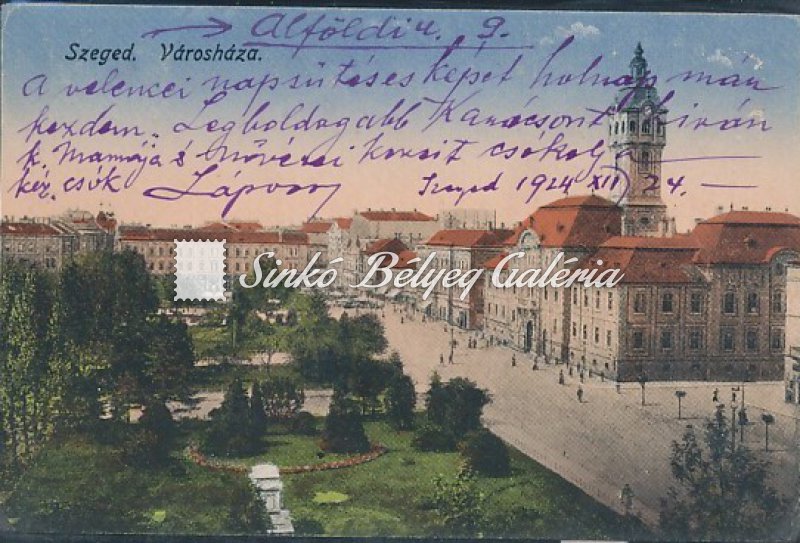 Alföldi u. 9.
Szeged. Városháza.
A velencei napsütéses képet holnap már
kezdem. Legboldogabb Karácsont kíván
k. Mamája s Művészi korait csókolj
kéz. csók
Szeged 1924 XII 24.
Sinkó Bélyeg Galéria